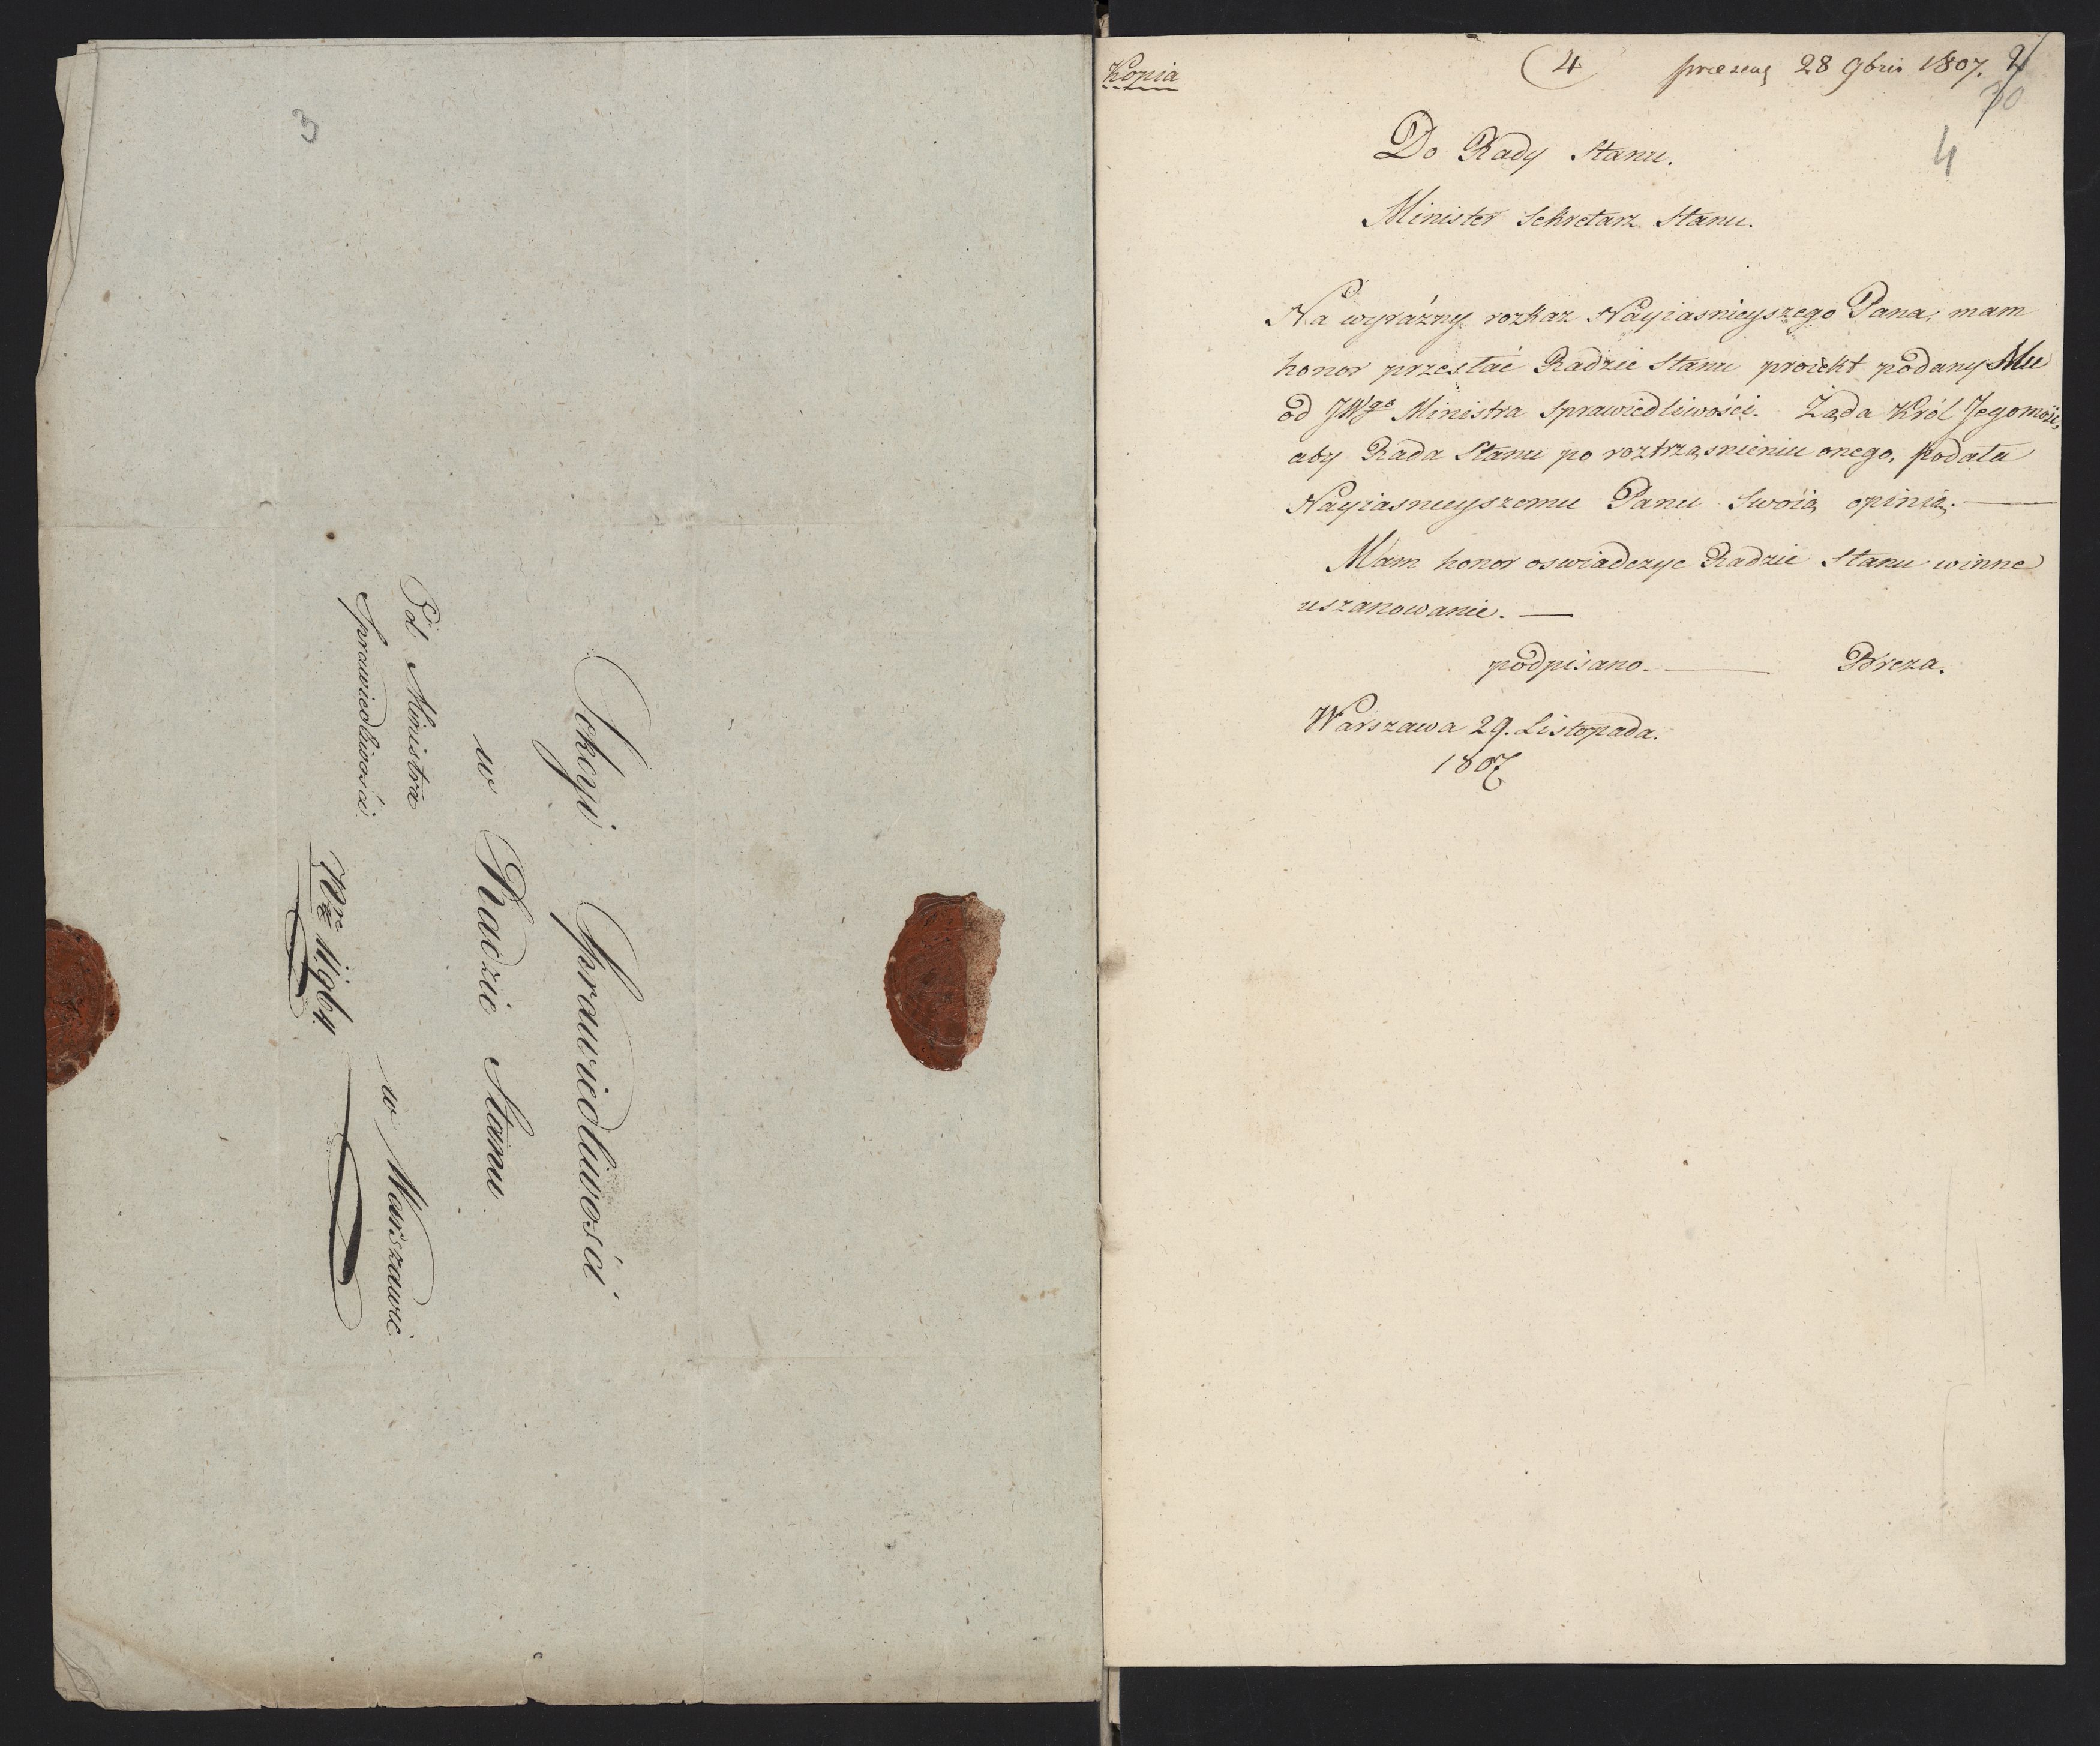 3
Sekcyi Sprawiedliwości
w Radzie Stanu
w Warszawie
Od Ministra
Sprawiedliwości
Nro 11,964.
Kopia
4 praesens 28 9bris 1807. 2
30
4
Do Rady Stanu.
Minister Sekretarz Stanu.
Na wyraźny rozkaz Nayiasnieyszego Pana, mam
honor przesłać Radzie Stanu proiekt podany Mu
od JWgo Ministra Sprawiedliwości. Żąda Król Jegomość,
aby Rada Stanu po roztrząsnieniu onego, podała
Nayiasnieyszemu Panu Swoią opinią. —
Mam honor oswiadczyc Radzie Stanu winne
uszanowanie. —
podpisano. — Breza.
Warszawa 29. Listopada.
1807